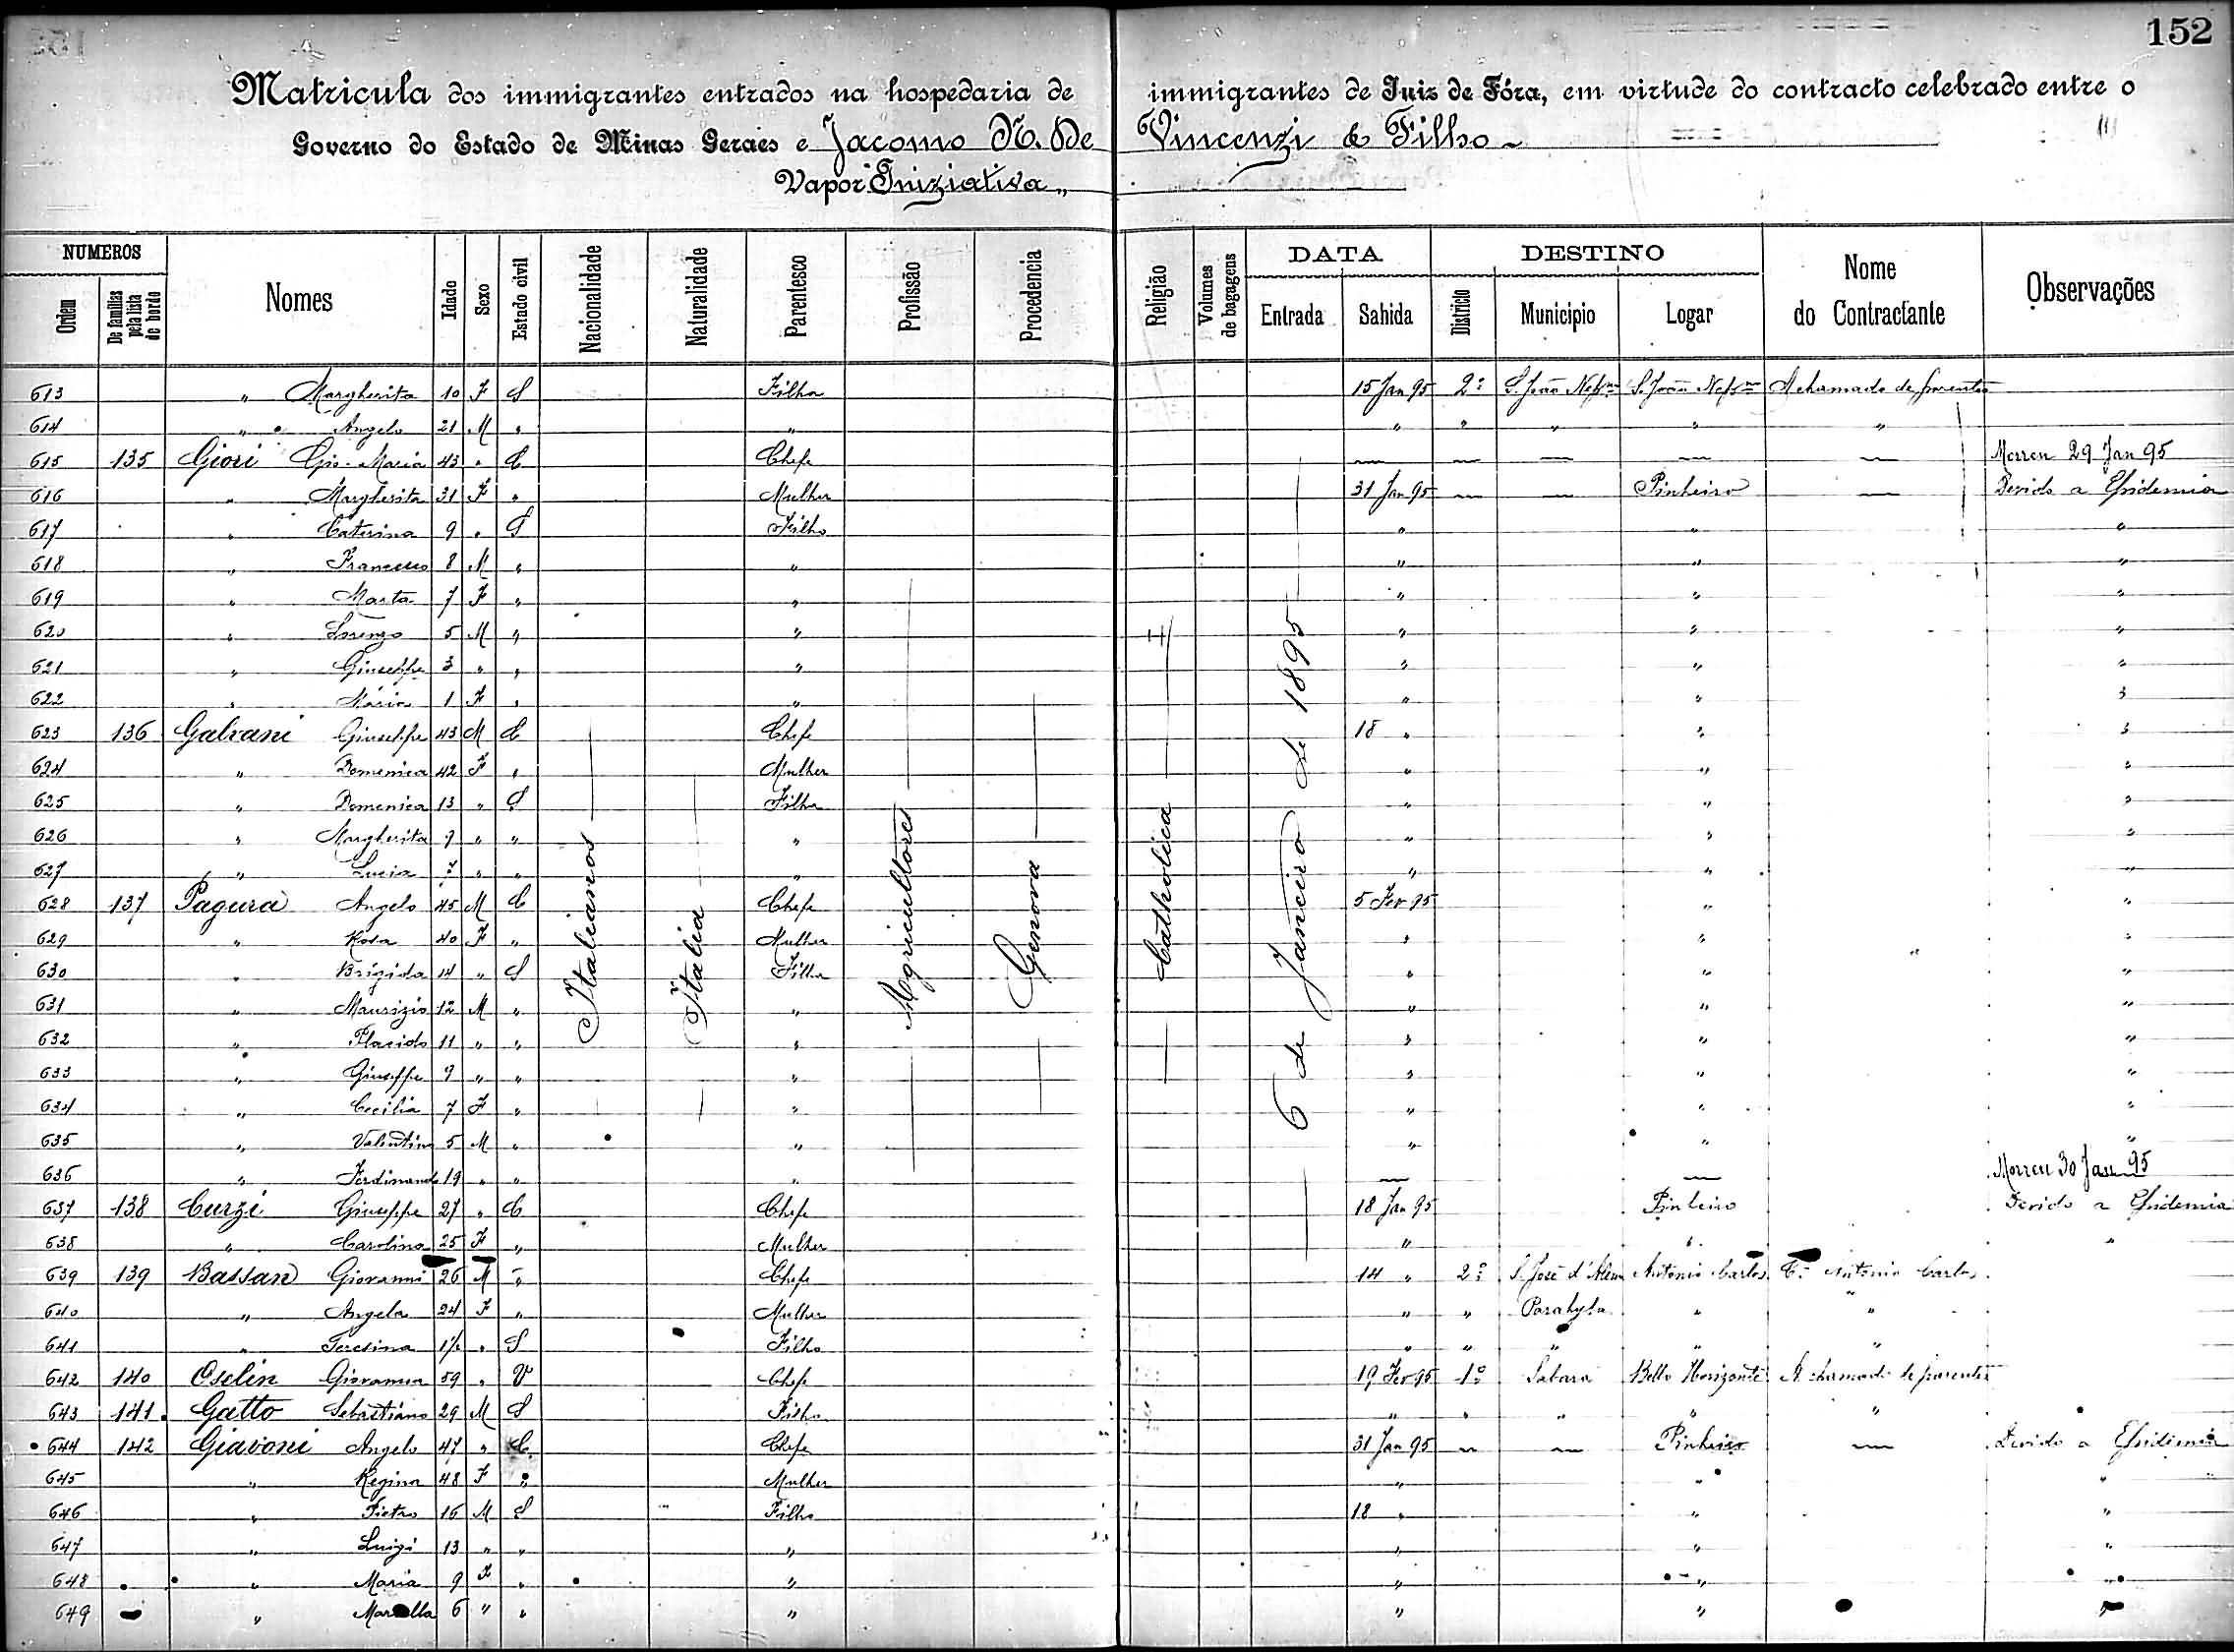 152
Matricula dos immigrantes entrados na hospedaria de immigrantes de Juiz de Fóra, em virtude do contracto celebrado entre o
Governo do Estado de Minas Geraes e Jacomo N. De Vincenzi & Filho
Vapor Iniziativa "
NUMEROS DATA DESTINO
Ordem De familias pela lista de bordo Nomes Idade Sexo Estado civil Nacionalidade Naturalidade Parentesco Profissão Procedencia Religião Volumes de bagagens Entrada Sahida Districto Municipio Logar Nome do Contractante Observações
Italianos Italia Agricultores Genova Catholica 6 de Janeiro de 1895
613 " Margherita 10 F S Filha 15 Jan 95 2º S. João Nepno S. João Nepno A chamado de parentes
614 " Angelo 21 M " " " " " " "
615 135 Giori Gio. Maria 43 " C Chefe — — — — — Morreu 29 Jan 95
616 " Margherita 31 F " Mulher 31 Jan 95 — — Pinheiro — Devido a Epidemia
617 " Caterina 9 " S Filho " " "
618 " Francesco 8 M " " " " "
619 " Marta 7 F " " " " "
620 " Lorenzo 5 M " " " " "
621 " Giuseppe 3 " " " " " "
622 " Maria 1 F " " " " "
623 136 Galvani Giuseppe 43 M C Chefe 18 " " "
624 " Domenica 42 F " Mulher " " "
625 " Domenica 13 " S Filha " " "
626 " Margherita 7 " " " " " "
627 " Lucia " " " " " "
628 137 Pagura Angelo 45 M C Chefe 5 Fev 95 " "
629 " Rosa 40 F " Mulher " " "
630 " Brigida 14 " S Filha " " "
631 " Maurizio 12 M " " " " "
632 " Placido 11 " " " " " "
633 " Giuseppe 9 " " " " " "
634 " Cecilia 7 F " " " " "
635 " Valentino 5 M " " " " "
636 " Ferdinando 19 " " " — — Morreu 30 Jan 95
637 138 Curzi Giuseppe 27 " C Chefe 18 Jan 95 Pinheiro Devido a Epidemia
638 " Carolina 25 F " Mulher " " "
639 139 Bassan Giovanni 26 M " Chefe 14 " 2º S. José d'Alem Antonio Carlos Antonio Carlos
640 " Angela 24 F " Mulher " " Parahyba " "
641 " Teresina 1½ " S Filho " " " " "
642 140 Oselin Giovanna 59 " V Chefe 19 Fev 95 1º Sabara Bello Horizonte A chamado de parentes
643 141 Gatto Sebastiano 29 M S Filho " " " " "
644 142 Giavoni Angelo 47 " C Chefe 31 Jan 95 — — Pinheiro — Devido a Epidemia
645 " Regina 48 F " Mulher " " "
646 " Pietro 16 M S Filho 18 " " "
647 " Luigi 13 " " " " " "
648 " Maria 9 F " " " " "
649 " 6 " " " " " "